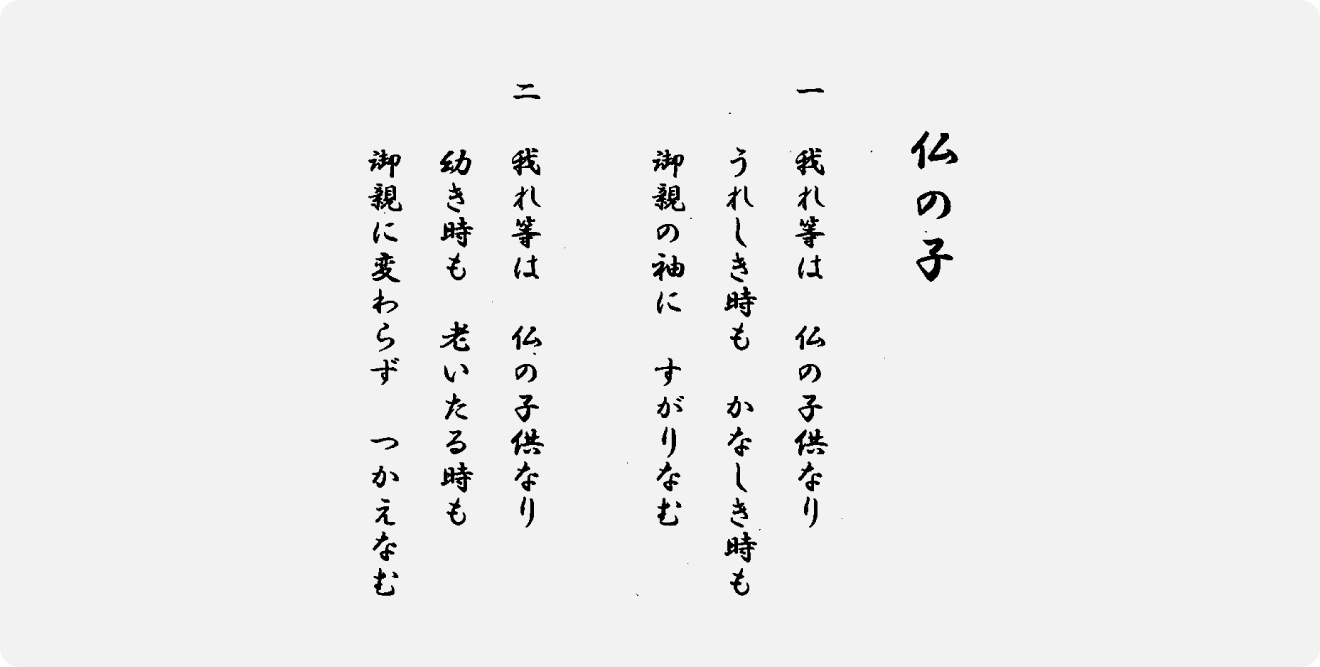 仏の子
一 我れ等は 仏の子供なり
うれしき時も かなしき時も
御親の袖に すがりなむ
二 我れ等は 仏の子供なり
幼き時も 老いたる時も
御親に変わらず つかえなむ